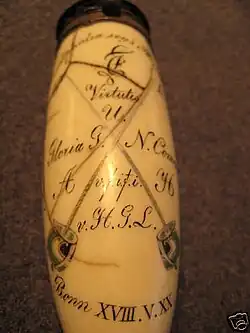 Virtutis
U.
Gloria G. N. Com
A v.l.f.i. H
v. H. G. L.
Bonn XVIII. V. XX